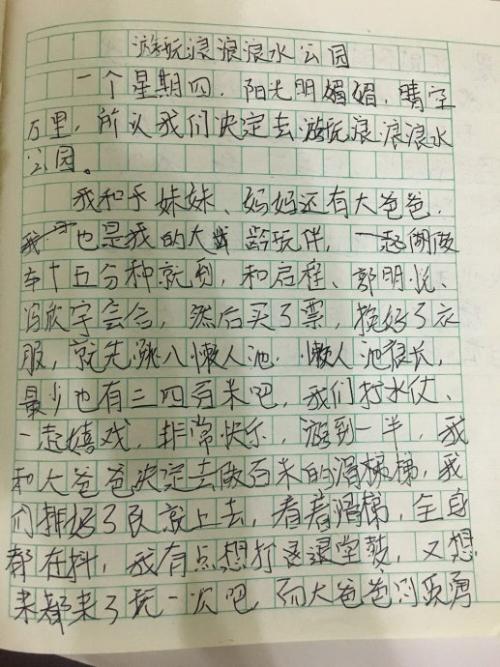 游玩浪浪浪水公园
一个星期四，阳光明媚媚，晴空
万里，所认我们决定去游玩浪浪浪水
公园。
我和乎妹妹、妈妈还有大爸爸，
也是我的大龄玩伴，一起
车十五分种就到，和启程、郭明悦、
冯欣宇会合，然后买了票，换好了衣
服，就先跳八懒人池，懒人池很长，
最少也有三四百米吧，我们打水仗、
一起嬉戏，非常快乐，游到一半，我
和大爸爸决定去做百米的滑梯梯，我
们排好了队就上去，看着滑梯，全身
都在抖，我有点想打退堂鼓，又想
来都来了玩一次吧，而大爸爸